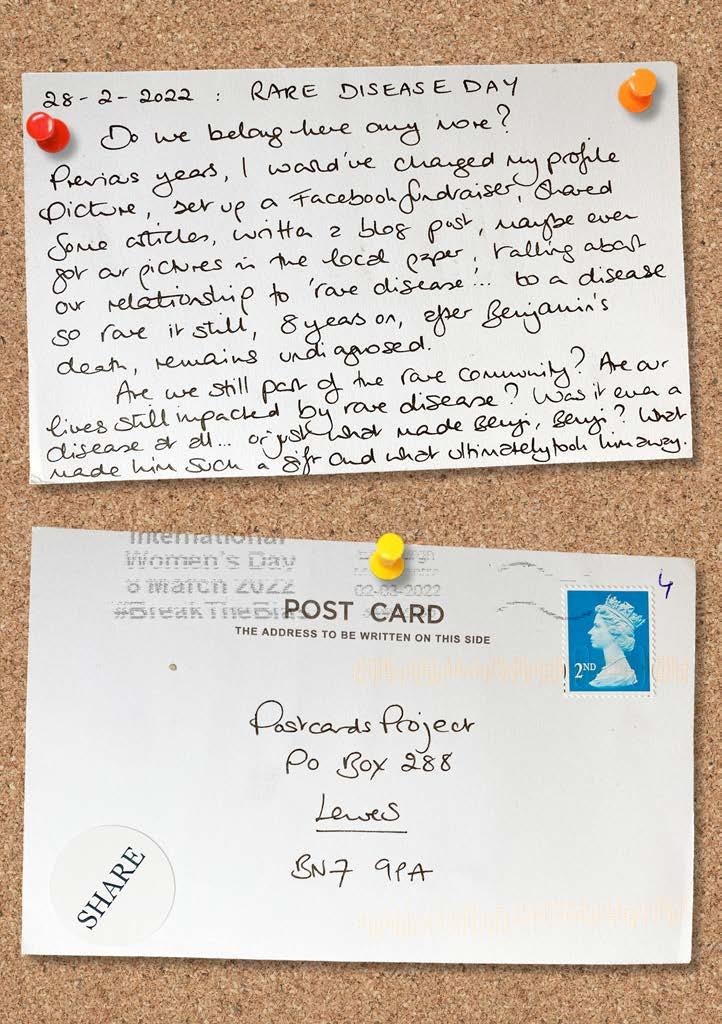 28-2-2022 : RARE DISEASE DAY
Do we belong here any more?
Previous years, I would've changed my profile
picture, set up a Facebook fundraiser, shared
some articles, written a blog post, maybe even
got our pictures in the local paper, talking about
our relationship to 'rare disease'... to a disease
so rare it still, 8 years on, after Benjamin's
death, remains undiagnosed.
Are we still part of the rare community? Are our
lives still impacted by rare disease? Was it even a
disease at all... or just what made Benji, Benji? What
made him such a gift and what ultimately took him away.
International
Women's Day
8 March 2022
#BreakTheBias
02-03-2022
POST CARD
THE ADDRESS TO BE WRITTEN ON THIS SIDE
4
2ND
Postcards Project
PO Box 288
Lewes
BN7 9PA
SHARE